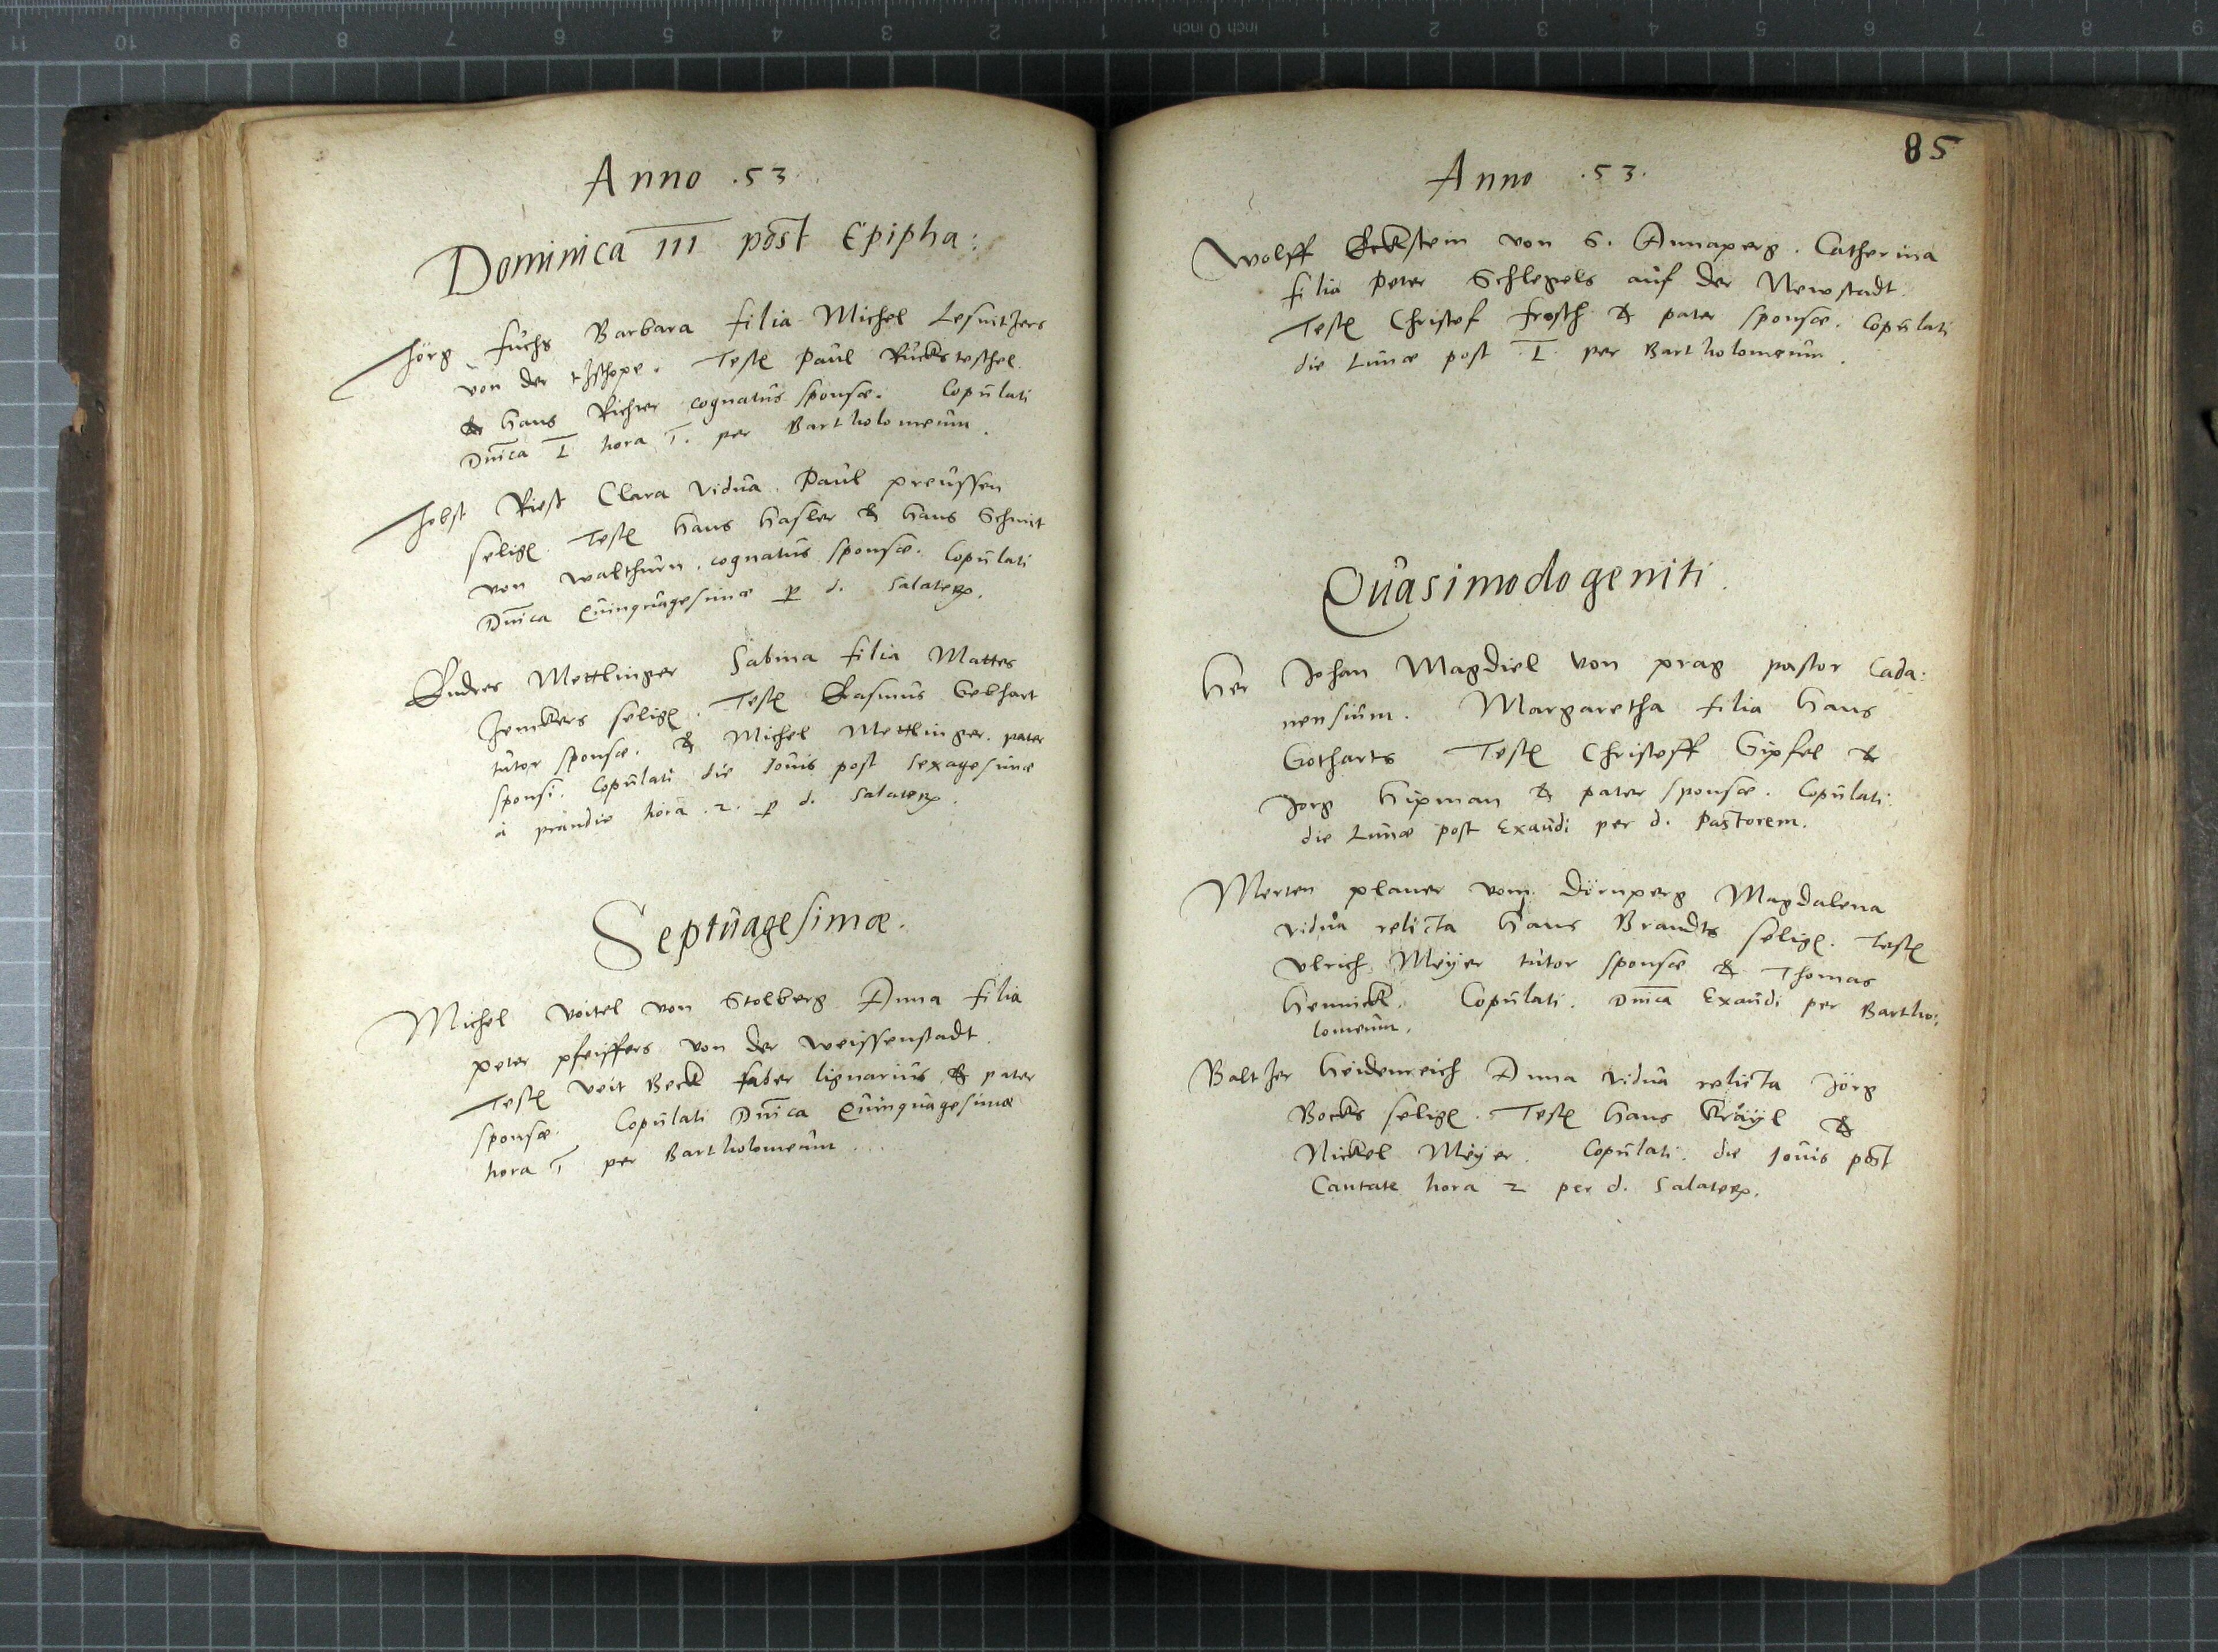 Anno .53.
Dominica III post Epipha:
Jörg Fuchs Barbara filia Michel Lesnitzers
von der tzschope. Testes Paul Rückteschel
& Hans Richter cognatus sponsæ. Copulati
Dnica I hora I. per Bartholomeum.
Jobst Riest Clara vidua Paul preussen
selig. Testes Hans Hasler & Hans Schmit
von walthurn. cognatus sponsæ. Copulati
Dnica Quinquagesimæ p d. Salaterū.
Endres Mettlinger Sabina filia Mattes
selig. Testes Erasmus Gebhart
tutor sponsæ. & Michel Mettlinger. pater
sponsi. Copulati die Iovis post Sexagesimæ
à prandio hora .2. p d. Salaterū.
Septuagesimæ.
Michel voitel von Stolberg Anna filia
peter pfeiffers von der weissenstadt.
Testes veit Beck faber lignarius & pater
sponsæ. Copulati Dnica Quinquagesimæ
hora I per Bartholomeum
85
Anno .53.
Wolff Eckstein von S. Annaperg. Catherina
filia Peter Schlegels auf der Newstadt.
Testes Christof frosch & pater sponsæ. Copulati
die Lunæ post I. per Bartholomæum.
Quasimodogeniti.
Her Johan Magdiel von prag pastor Cada:
nensium. Margaretha filia Hans
Gotharts Testes Christoff Gipfel &
Jorg Hipman & pater sponsæ. Copulati
die Lunæ post Exaudi per d. Pastorem.
Merten planer vom Dürnperg Magdalena
vidua relicta Hans Brandts selig. Testes
Vlrich Meÿer tutor sponsæ & Thomas
Hennickl. Copulati. Dnica Exaudi per Bartho:
lomeum.
Baltzer Heidenreich Anna vidua relicta Jörg
Bocks selig. Testes Hans Kraÿl &
Nickel Meÿer. Copulati. die Iovis post
Cantate hora 2 per d. Salaterū.
11 10 9 8 7 6 5 4 3 2 1 inch 0 inch 1 2 3 4 5 6 7 8 9